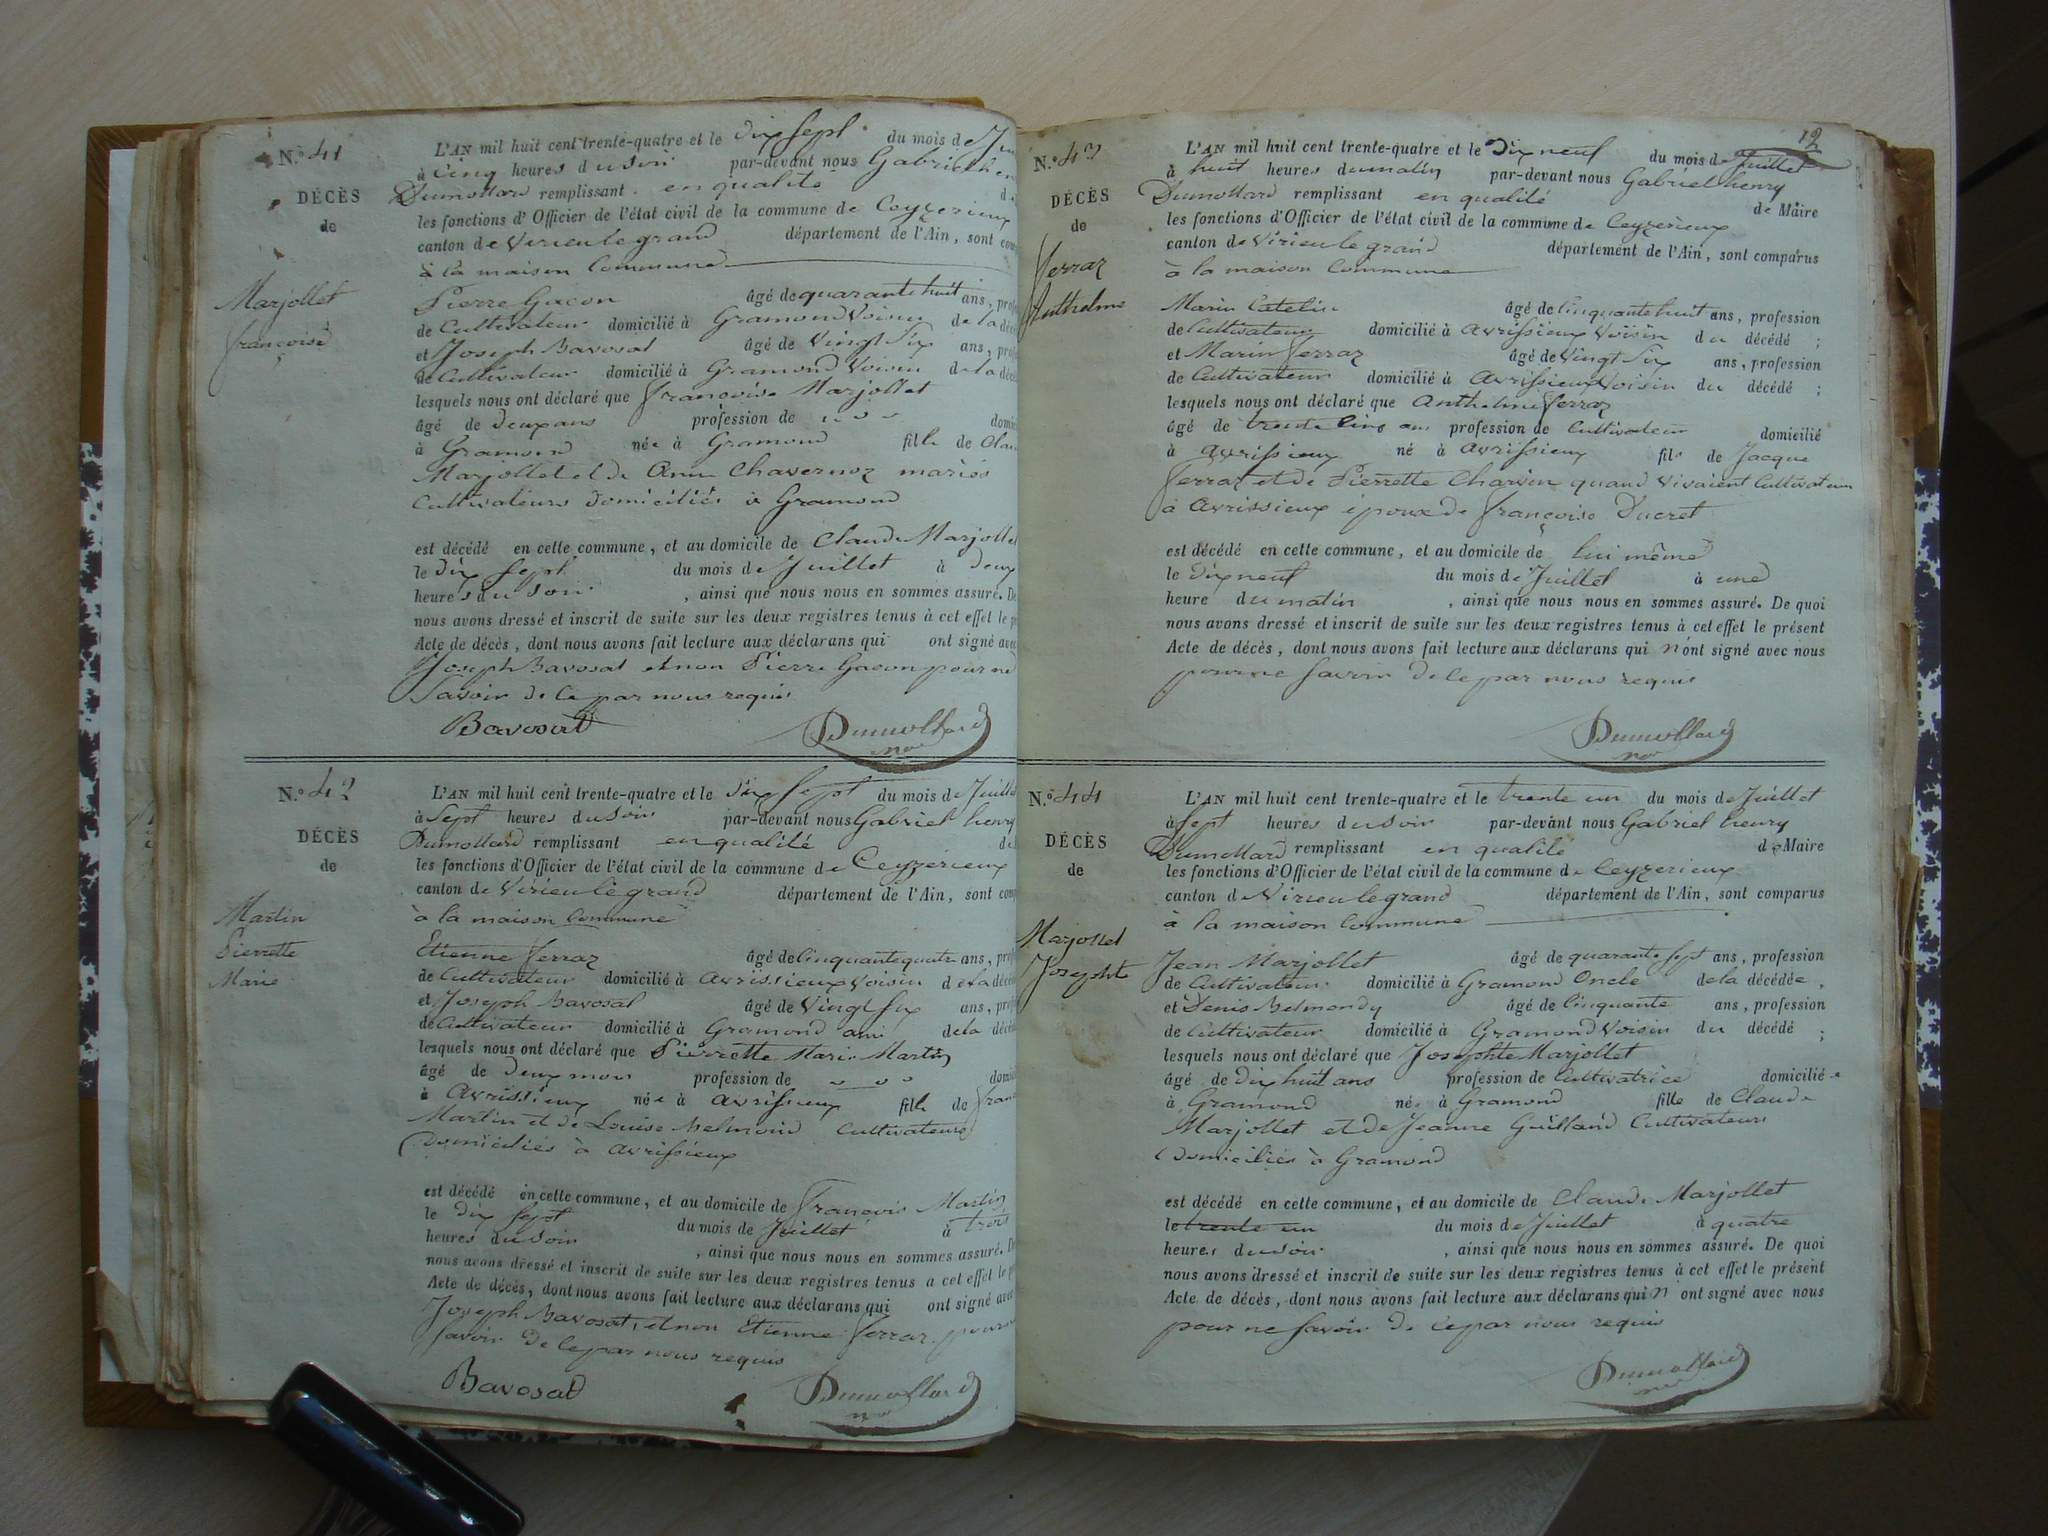 N.º 41
DÉCÈS
de
Marjollet
françoise
L'AN mil huit cent trente-quatre et le dix sept du mois de
à cinq heures du soir par-devant nous Gabriel hen
Dumollard remplissant en qualité d
les fonctions d'Officier de l'état civil de la commune de Ceyzerieux
canton de Virieu le grand département de l'Ain, sont com
à la maison Commune
Pierre Gacon âgé de quarante huit ans, prof
de Cultivateur domicilié à Gramond Voisin de la déc
et Joseph Bavosat âgé de Vingt Six ans, prof
de Cultivateur domicilié à Gramond Voisin de la déc
lesquels nous ont déclaré que françoise Marjollet
âgé de deux ans profession de domici
à Gramond née à Gramond fille de Clau
Marjollet et de Anne Chavernoz mariés
Cultivateurs domiciliés à Gramond
est décédé en cette commune, et au domicile de Claude Marjollet
le dix sept du mois de Juillet à deux
heures du soir , ainsi que nous nous en sommes assuré. De
nous avons dressé et inscrit de suite sur les deux registres tenus à cet effet le p
Acte de décès, dont nous avons fait lecture aux déclarans qui ont signé avec
Joseph Bavosat et non Pierre Gacon pour ne
Savoir de ce par nous requis
Bavosat Dumollard
N.º 42
DÉCÈS
de
Martin
Pierrette
Marie
L'AN mil huit cent trente-quatre et le dix Sept du mois de Juillet
à Sept heures du Soir par-devant nous Gabriel henry
Dumollard remplissant en qualité de
les fonctions d'Officier de l'état civil de la commune de Ceyzérieux
canton de Virieu le grand département de l'Ain, sont comp
à la maison Commune
Etienne ferraz âgé de Cinquante quatre ans, prof
de Cultivateur domicilié à Avrissieux Voisin de la décé
et Joseph Bavosat âgé de Vingt six ans, prof
de Cultivateur domicilié à Gramond ami de la décé
lesquels nous ont déclaré que Pierrette Marie Martin
âgé de deux mois profession de domici
à Avrissieux née à Avrissieux fille de fran
Martin et de Louise Belmond Cultivateurs
domiciliés à Avrissieux
est décédé en cette commune, et au domicile de François Martin
le dix sept du mois de Juillet à trois
heures du soir , ainsi que nous nous en sommes assuré. De
nous avons dressé et inscrit de suite sur les deux registres tenus à cet effet le p
Acte de décès, dont nous avons fait lecture aux déclarans qui ont signé avec
Joseph Bavosat, et non Etienne ferraz pour
savoir de ce par nous requis
Bavosat Dumollard
12
N.º 43
DÉCÈS
de
ferraz
Anthelme
L'AN mil huit cent trente-quatre et le dix neuf du mois de Juillet
à huit heures du matin par-devant nous Gabriel henry
Dumollard remplissant en qualité de Maire
les fonctions d'Officier de l'état civil de la commune de Ceyzérieux
canton de Virieu le grand département de l'Ain, sont comparus
à la maison Commune
Marin Catelin âgé de Cinquante huit ans, profession
de Cultivateur domicilié à Avrissieux Voisin du décédé ;
et Marin ferraz âgé de Vingt Six ans, profession
de Cultivateur domicilié à Avrissieux Voisin du décédé ;
lesquels nous ont déclaré que Anthelme ferraz
âgé de trente Cinq ans profession de Cultivateur domicilié
à Avrissieux né à Avrissieux fils de Jacque
ferraz et de Pierrette Charvin quand Vivaient Cultivateurs
à Avrissieux époux de françoise Ducret
est décédé en cette commune, et au domicile de lui même
le dix neuf du mois de Juillet à une
heure du matin , ainsi que nous nous en sommes assuré. De quoi
nous avons dressé et inscrit de suite sur les deux registres tenus à cet effet le présent
Acte de décès, dont nous avons fait lecture aux déclarans qui n'ont signé avec nous
pour ne Savoir de ce par nous requis
Dumollard
N.º 44
DÉCÈS
de
Marjollet
Josephte
L'AN mil huit cent trente-quatre et le trente un du mois de Juillet
à sept heures du soir par-devant nous Gabriel henry
Dumollard remplissant en qualité de Maire
les fonctions d'Officier de l'état civil de la commune de Ceyzerieux
canton de Virieu le grand département de l'Ain, sont comparus
à la maison Commune
Jean Marjollet âgé de quarante sept ans, profession
de Cultivateur domicilié à Gramond Oncle de la décédée ,
et Denis Belmondy âgé de Cinquante ans, profession
de Cultivateur domicilié à Gramond Voisin du décédé ;
lesquels nous ont déclaré que Josephte Marjollet
âgé de dix huit ans profession de Cultivatrice domiciliée
à Gramond né à Gramond fille de Claude
Marjollet et de Jeanne Guilland Cultivateurs
domiciliés à Gramond
est décédé en cette commune, et au domicile de Claude Marjollet
le trente un du mois de Juillet à quatre
heures du soir , ainsi que nous nous en sommes assuré. De quoi
nous avons dressé et inscrit de suite sur les deux registres tenus à cet effet le présent
Acte de décès, dont nous avons fait lecture aux déclarans qui n ont signé avec nous
pour ne savoir de ce par nous requis
Dumollard